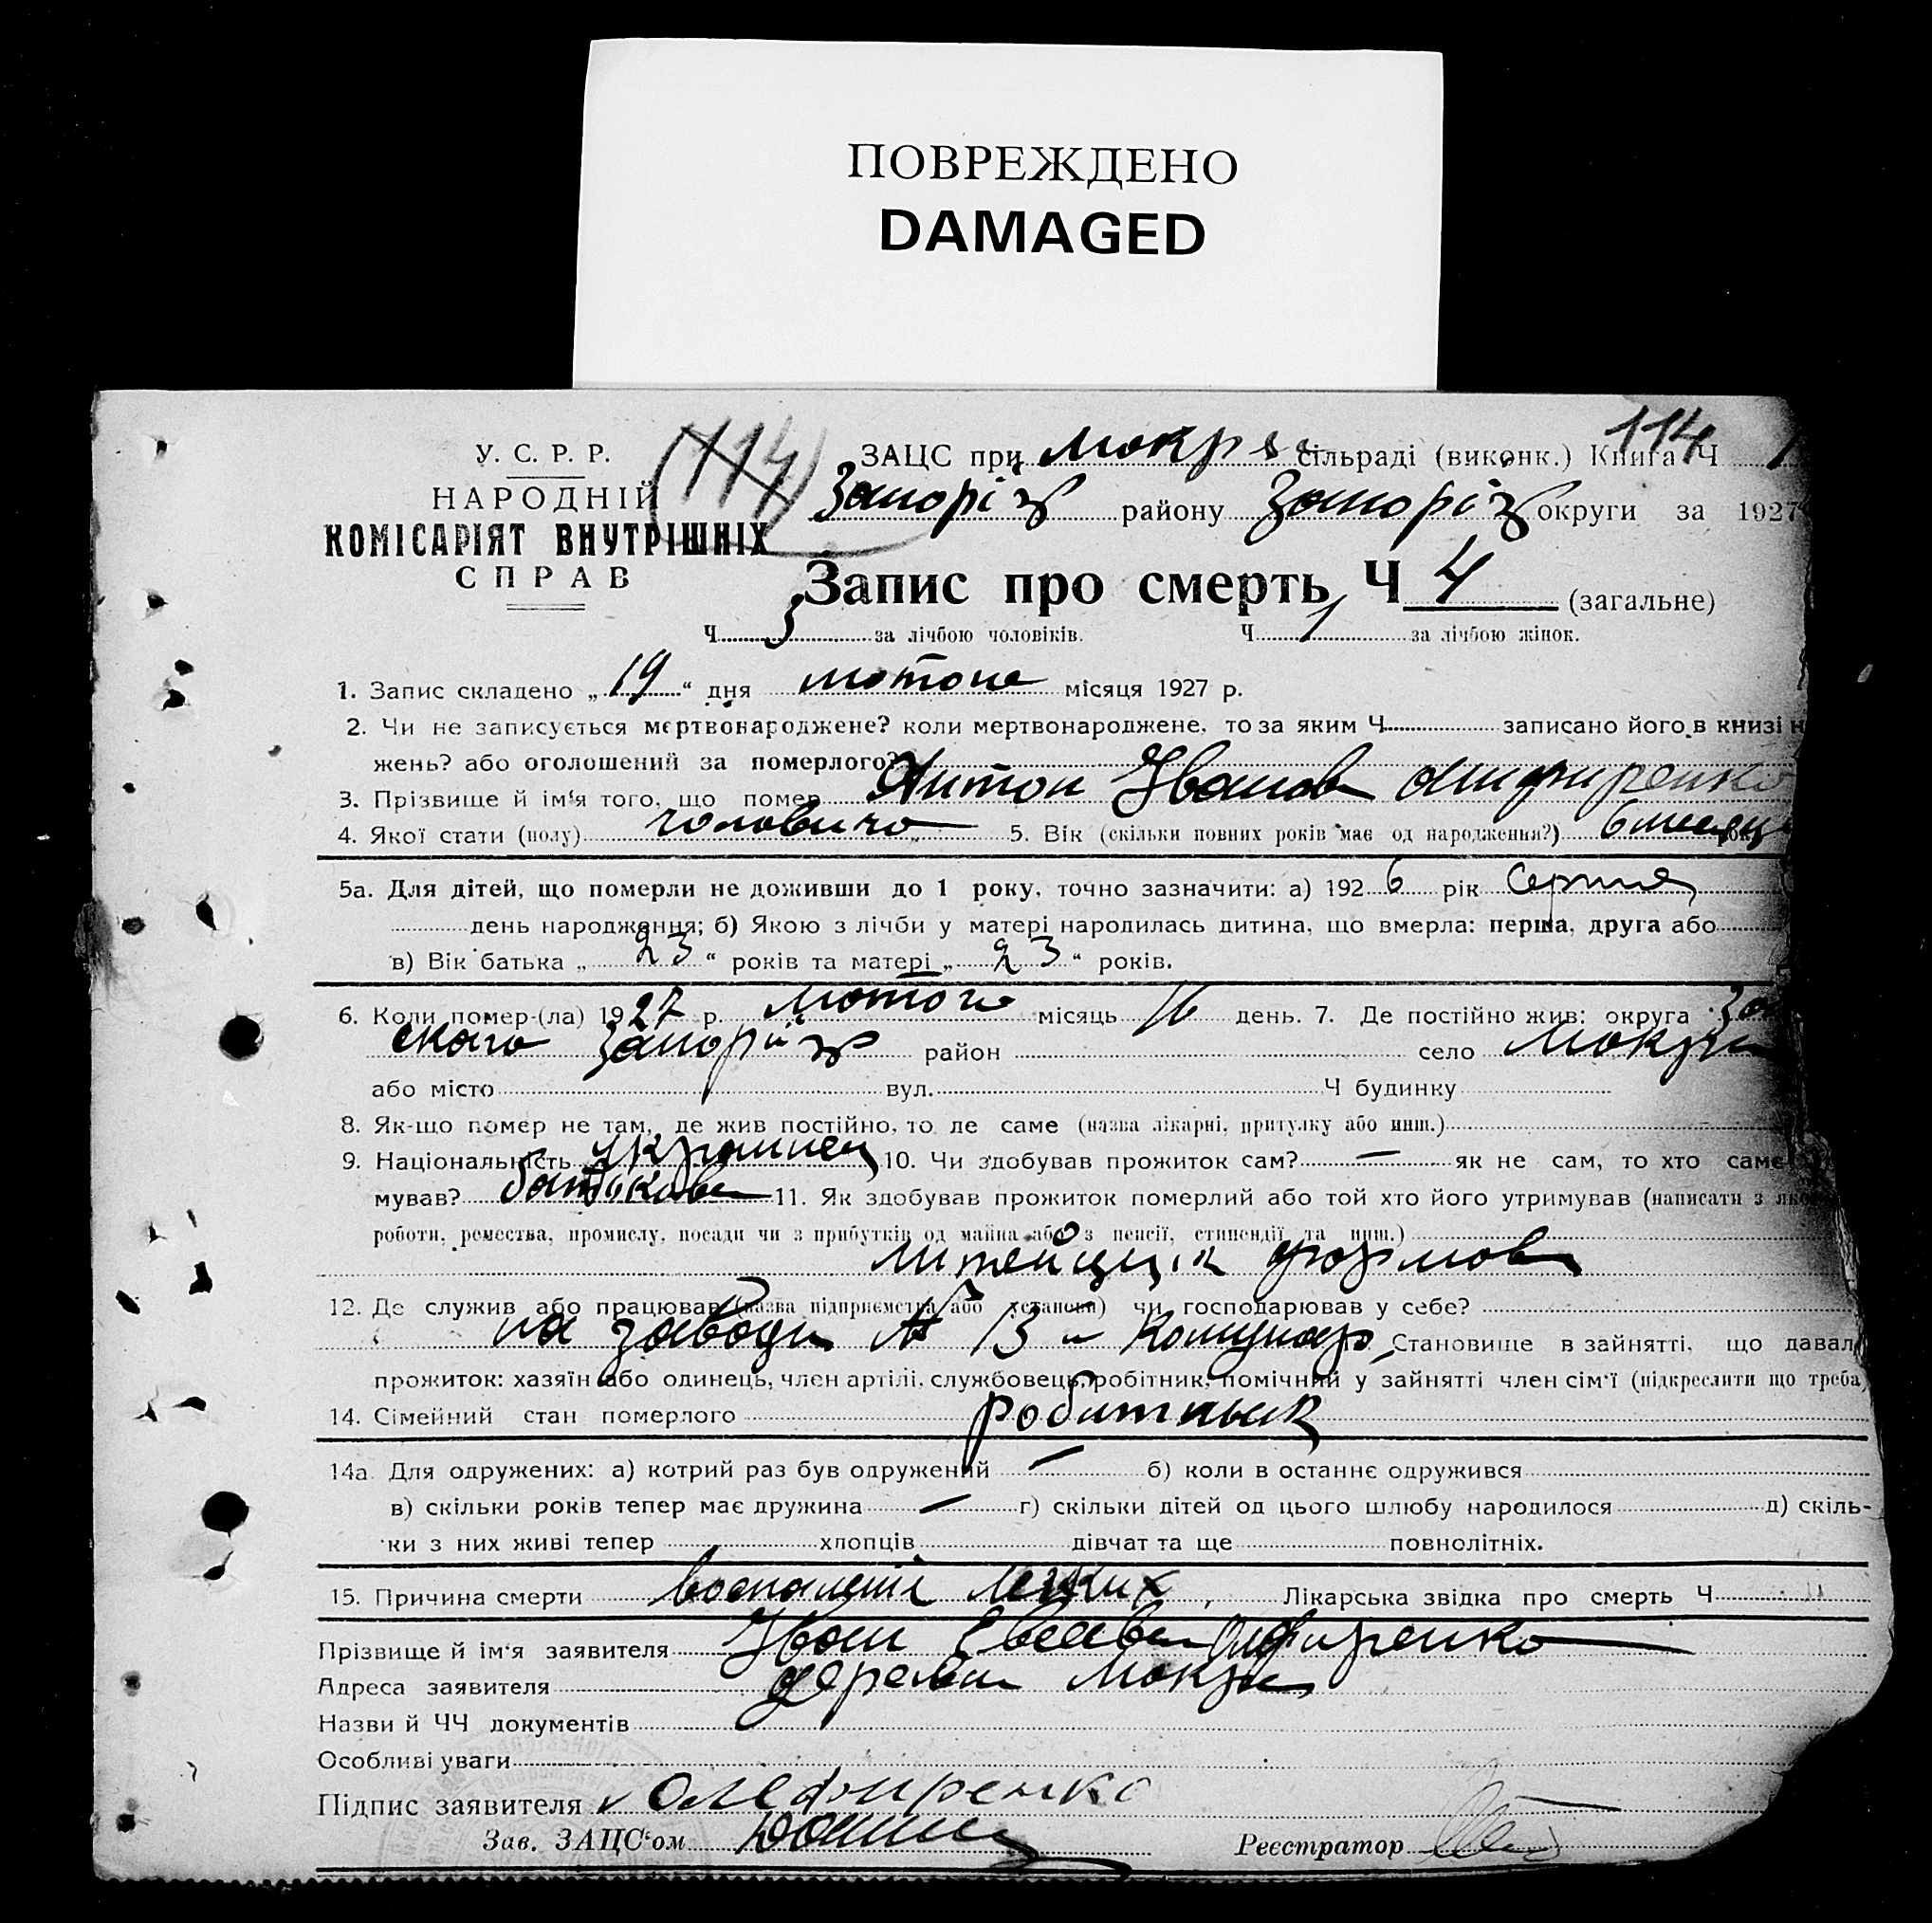 ПОВРЕЖДЕНО
DAMAGED
114
У. С. Р. Р.
НАРОДНІЙ
КОМІСАРІЯТ ВНУТРІШНІХ
СПРАВ
(114)
ЗАЦС при Мокря сільраді (виконк.) Книга Ч 1
Запоріз району Запоріз округи за 1927
Запис про смерть Ч 4 (загальне)
Ч 3 за лічбою чоловіків. Ч 1 за лічбою жінок.
1. Запис складено „ 19 “ дня лютого місяця 1927 р.
2. Чи не записується мертвонароджене? коли мертвонароджене, то за яким Ч записано його в книзі н
жень? або оголошений за померлого?
3. Прізвище й ім'я того, що помер Антон Иванов
4. Якої стати (полу) 5. Вік (скільки повних років має од народження?) 6 месяц
5а. Для дітей, що померли не доживши до 1 року, точно зазначити: а) 192 6 рік Серпня
день народження; б) Якою з лічби у матері народилась дитина, що вмерла: перша, друга або
в) Вік батька „ 23 “ років та матері „ 23 “ років.
6. Коли помер-(ла) 19 27 р. лютого місяць 16 день. 7. Де постійно жив: округа Зап
ского Запоріз район село Мокри
або місто вул. Ч будинку
8. Як-що помер не там, де жив постійно, то де саме (назва лікарні, притулку або инш.)
9. Національність украинец 10. Чи здобував прожиток сам? — як не сам, то хто саме
мував? 11. Як здобував прожиток померлий або той хто його утримував (написати з яко
роботи, ремества, промислу, посади чи з прибутків од майна або з пенсії, стипендії та инш.)
литейщик формов
12. Де служив або працював (назва підприємства або установи) чи господарював у себе?
на заводи № 13 и Комунар Становище в зайнятті, що давал
прожиток: хазяїн або одинець, член артілі, службовець, робітник, помічний у зайнятті член сім'ї (підкреслити що треба)
14. Сімейний стан померлого робитнык
14а Для одружених: а) котрий раз був одружений — б) коли в останнє одружився
в) скільки років тепер має дружина — г) скільки дітей од цього шлюбу народилося д) скіль-
ки з них живі тепер хлопців дівчат та ще повнолітніх.
15. Причина смерти воспаленiе легких, Лікарська звідка про смерть Ч
Прізвище й ім'я заявителя Иван Олефиренко
Адреса заявителя деревни Мокри
Назви й ЧЧ документів
Особливі уваги
Підпис заявителя Олефиренко
Зав. ЗАЦС'ом Реєстратор